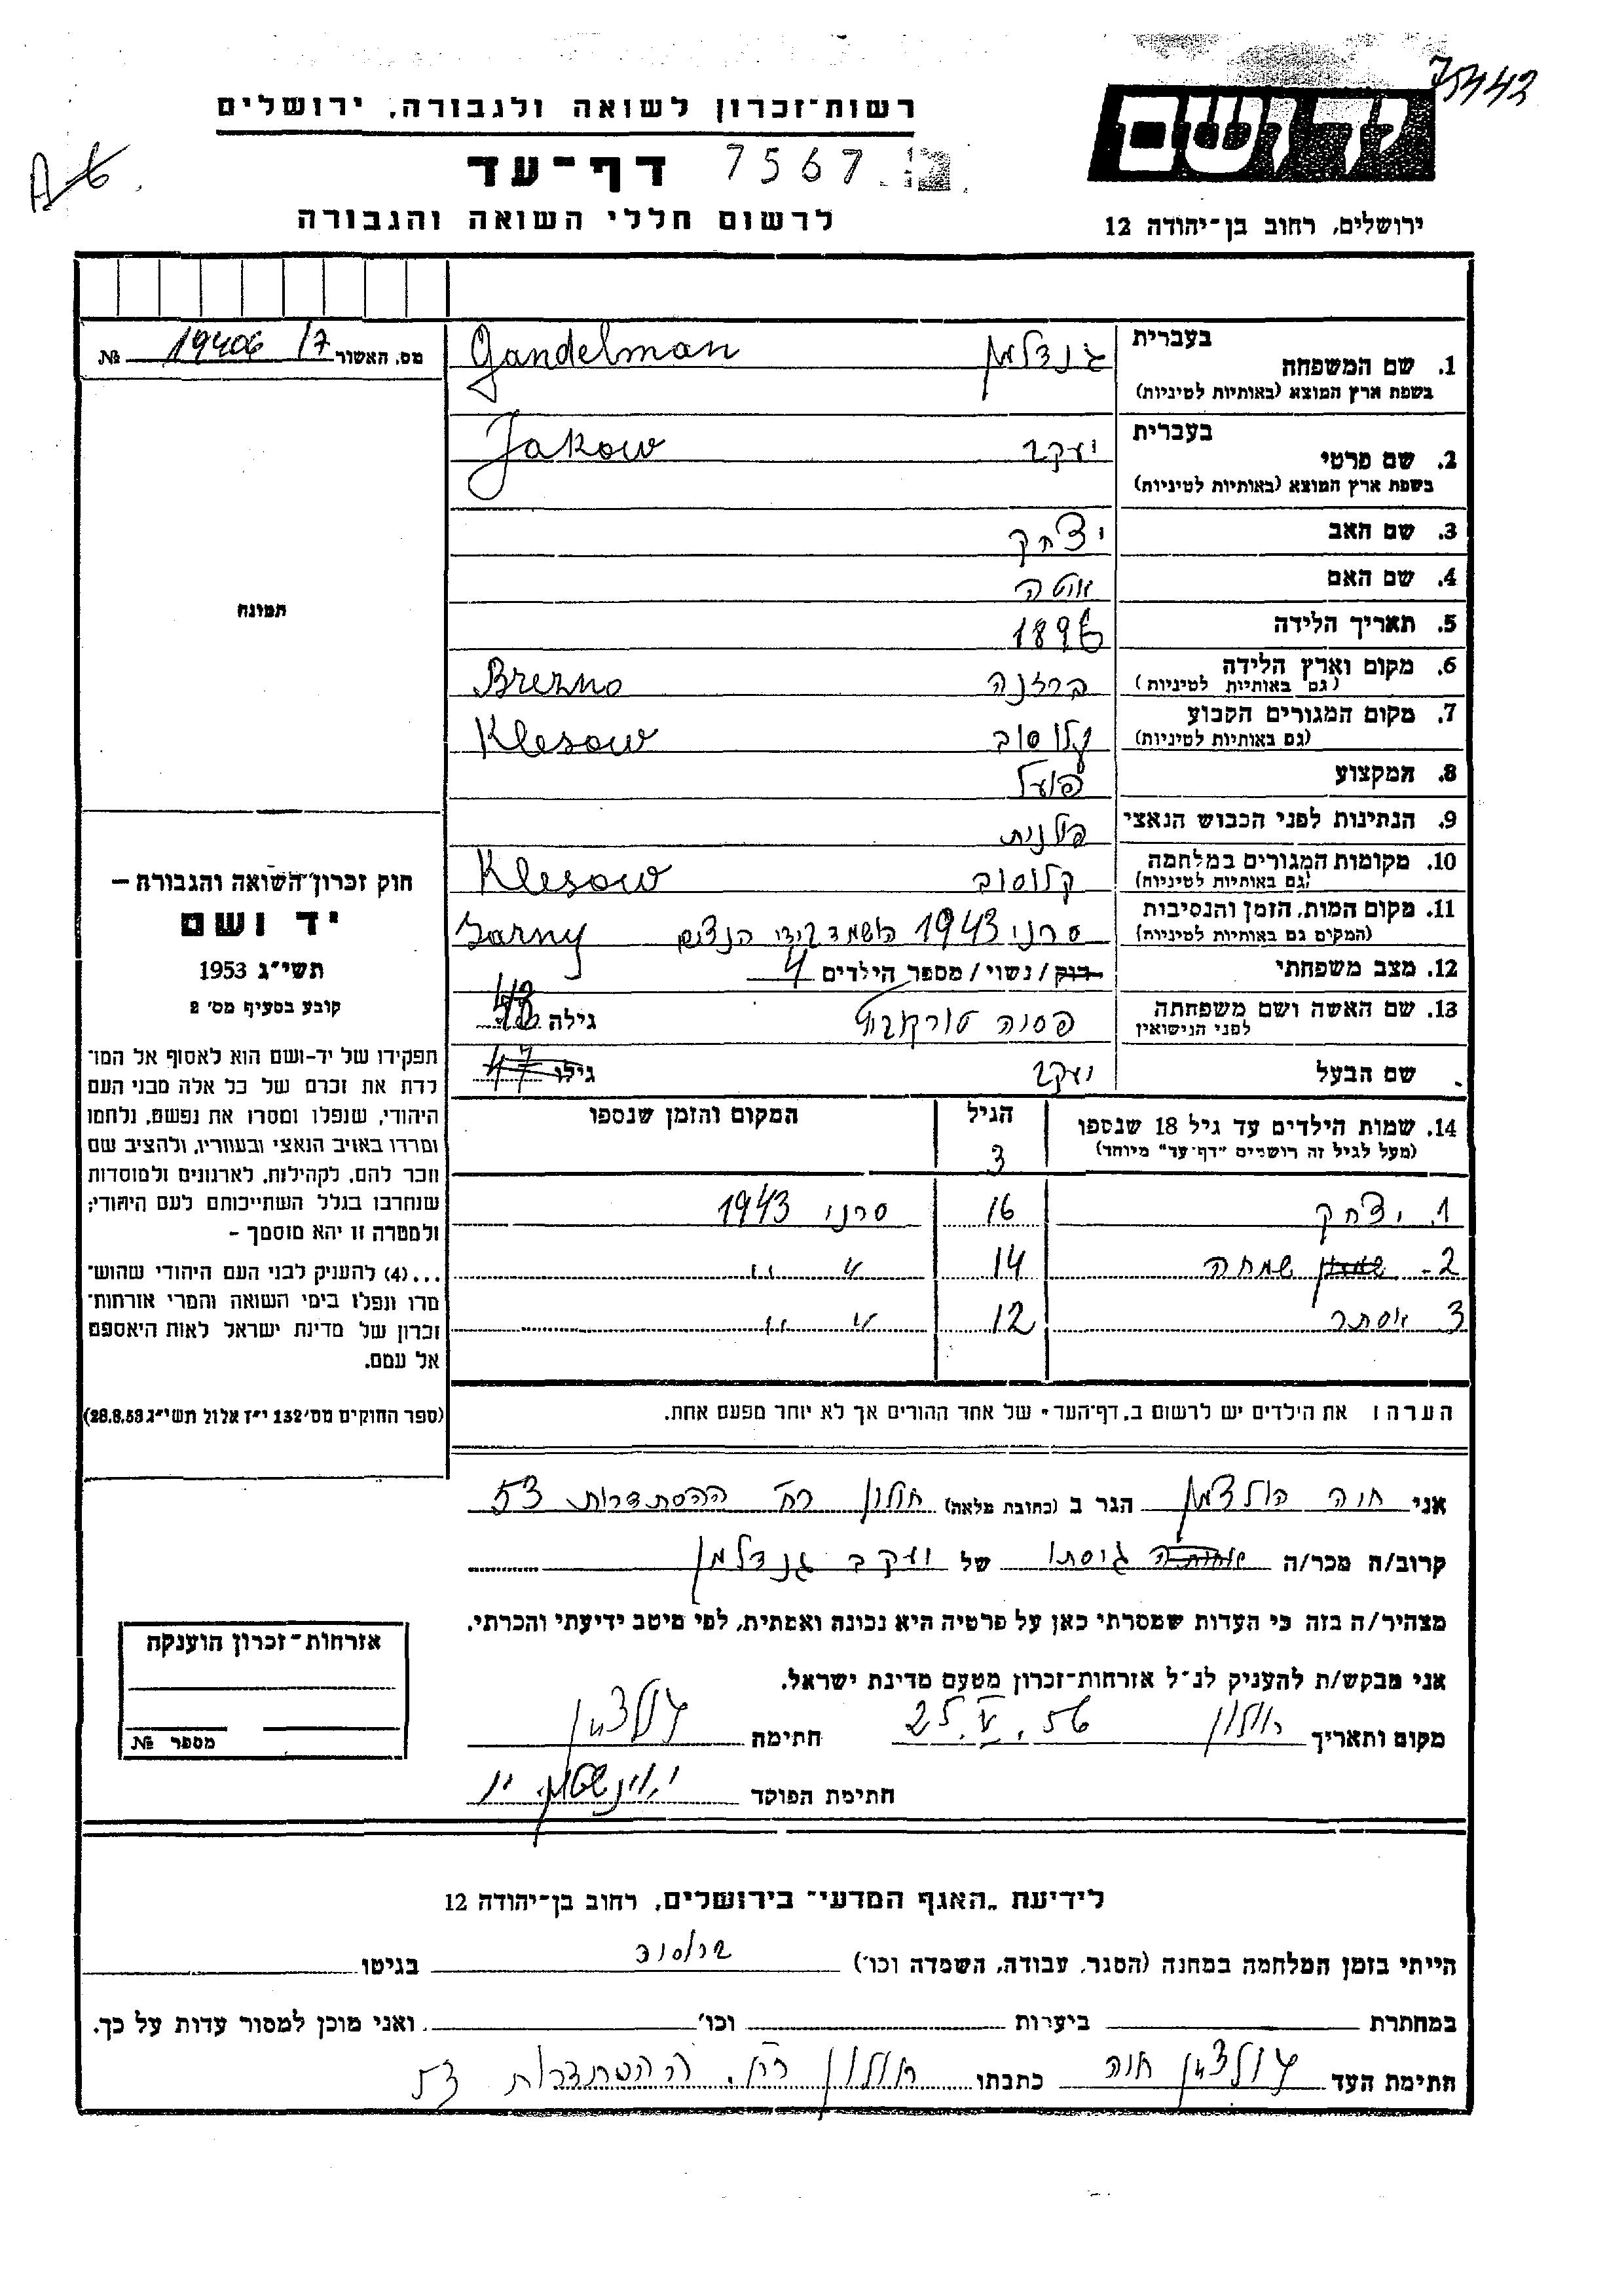 75442
רשות־זכרון לשואה ולגבורה, ירושלים
יד ושם
A6
דף־עד 7567
לרשום חללי השואה והגבורה
ירושלים, רחוב בן־יהודה 12
מס. האשור 19406 /7 №
תמונה
חוק זכרון־השואה והגבורה –
יד ושם
תשי״ג 1953
קובע בסעיף מס׳ 2
תפקידו של יד-ושם הוא לאסוף אל המו־
לדת את זכרם של כל אלה מבני העם
היהודי, שנפלו ומסרו את נפשם, נלחמו
ומרדו באויב הנאצי ובעוזריו, ולהציב שם
וזכר להם, לקהילות, לארגונים ולמוסדות
שנחרבו בגלל השתייכותם לעם היהודי;
ולמטרה זו יהא מוסמך –
...(4) להעניק לבני העם היהודי שהוש־
מדו ונפלו בימי השואה והמרי אזרחות־
זכרון של מדינת ישראל לאות היאספם
אל עמם.
(ספר החוקים מס׳ 132 י״ז אלול תשי״ג 28.8.53)
בעברית
1. שם המשפחה גנדלמן Gandelman
בשפת ארץ המוצא (באותיות לטיניות)
בעברית
2. שם פרטי יעקב Jakow
בשפת ארץ המוצא (באותיות לטיניות)
3. שם האב יצחק
4. שם האם
5. תאריך הלידה 1896
6. מקום וארץ הלידה ברזנה Brezno
(גם באותיות לטיניות)
7. מקום המגורים הקבוע קלוסוב Klesow
(גם באותיות לטיניות)
8. המקצוע פועל
9. הנתינות לפני הכבוש הנאצי פולנית
10. מקומות המגורים במלחמה קלוסוב Klesow
(גם באותיות לטיניות)
11. מקום המות, הזמן והנסיבות סרני 1943 הושמד בידי הנצים Sarny
(המקום גם באותיות לטיניות)
12. מצב משפחתי רוק / נשוי / מספר הילדים 4
13. שם האשה ושם משפחתה פסיה גילה
לפני הנישואין
שם הבעל יעקב גילו 47
14. שמות הילדים עד גיל 18 שנספו הגיל המקום והזמן שנספו
(מעל לגיל זה רושמים ״דף־עד״ מיוחד) 3
1. יצחק 16 סרני 1943
2- שמחה 14 " "
3 אסתר 12 " "
הערה: את הילדים יש לרשום ב„דף־העד״ של אחד ההורים אך לא יותר מפעם אחת.
אני חוה הולצמן הגר ב (כתובת מלאה) חולון רח׳ ההסתדרות 53
קרוב/ה מכר/ה גיסתו של יעקב גנדלמן
מצהיר/ה בזה כי העדות שמסרתי כאן על פרטיה היא נכונה ואמתית, לפי מיטב ידיעתי והכרתי.
אני מבקש/ת להעניק לנ״ל אזרחות־זכרון מטעם מדינת ישראל.
מקום ותאריך חולון 25.V.56 חתימה הולצמן
חתימת הפוקד
אזרחות־זכרון הוענקה
מספר №
לידיעת „האגף המדעי״ בירושלים, רחוב בן־יהודה 12
הייתי בזמן המלחמה במחנה (הסגר, עבודה, השמדה וכו׳) בגיטו
במחתרת ביערות וכו׳ ואני מוכן למסור עדות על כך.
חתימת העד הולצמן חוה כתבתו חולון רח׳. ההסתדרות 53